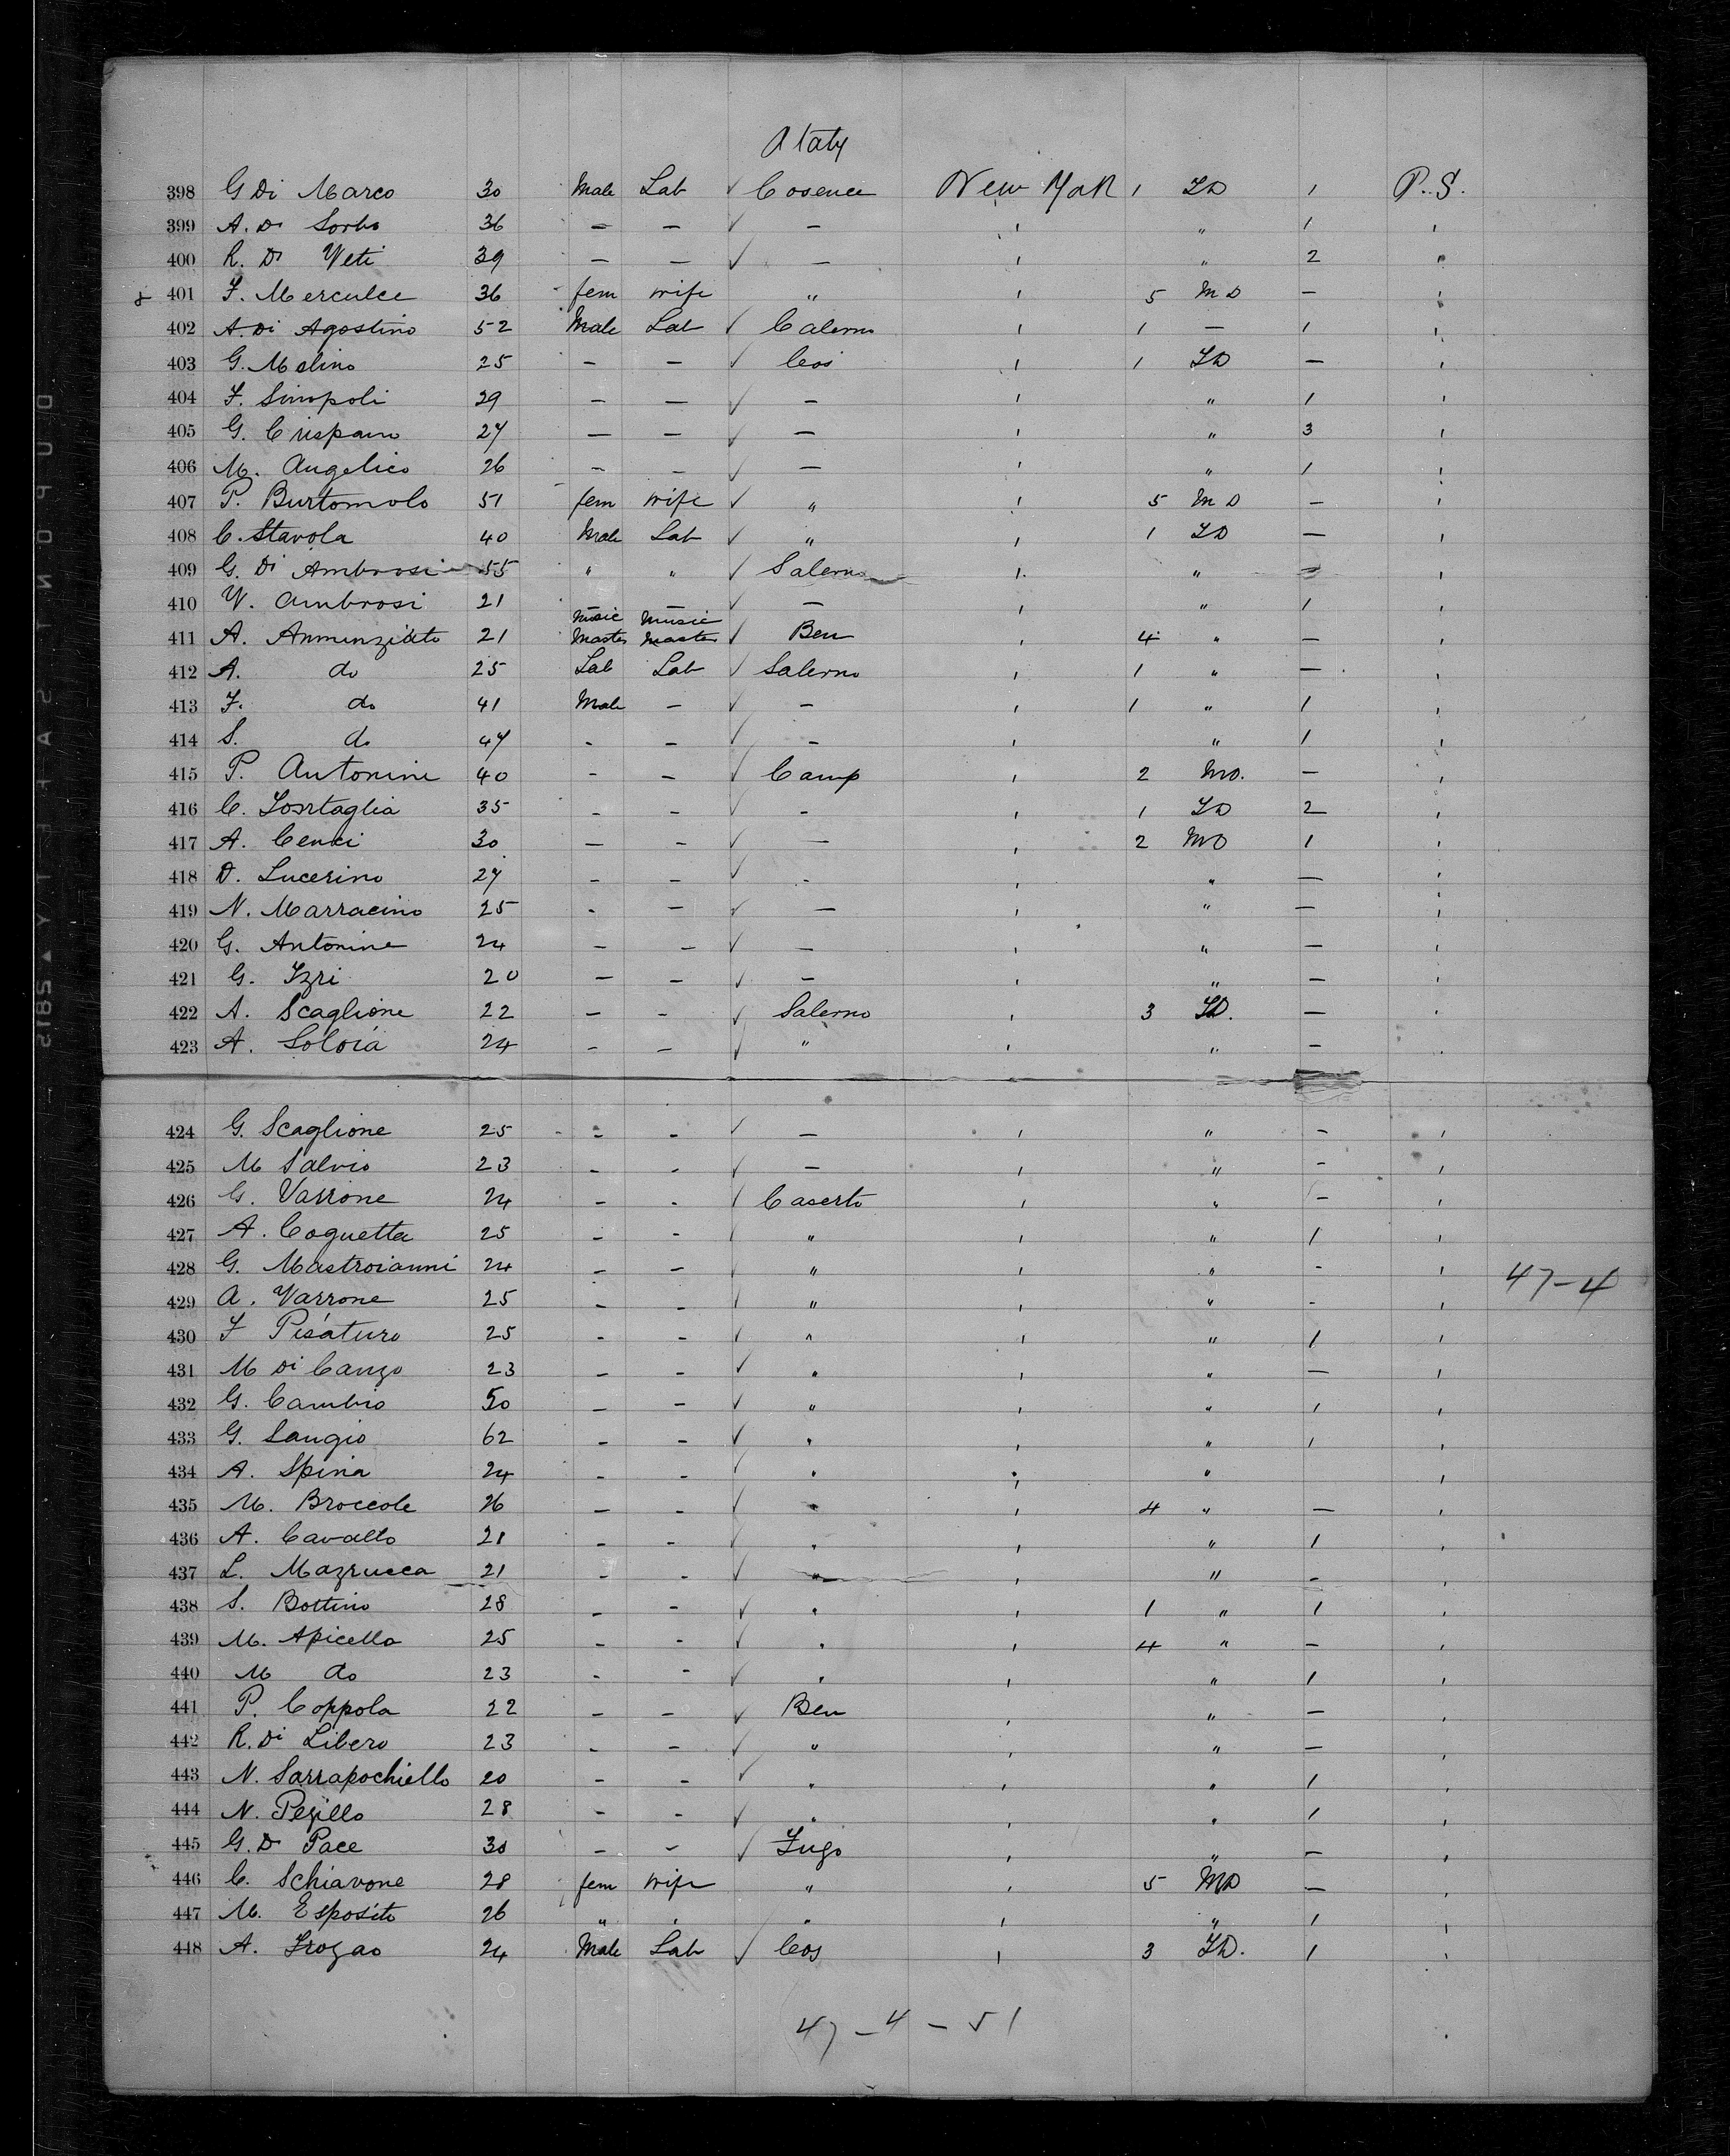 Italy
398 G Di Marco 30 Male Lab ✓ Cosence New York 1 LD 1 P.S.
399 A. Di Sorbo 36 — — ✓ — ' " 1 '
400 R. Di Veti 39 — — ✓ — ' " 2 "
401 F. Merculce 36 fem wife " ' 5 MD — '
402 A. Di Agostino 52 Male Lab ✓ Calerno ' 1 — 1 '
403 G. Molino 25 — — ✓ Cos ' 1 LD — '
404 F. Sinopoli 29 — — ✓ — ' " 1 '
405 G. Crispano 27 — — ✓ — ' " 3 '
406 M. Angelico 26 — — ✓ — ' " 1 '
407 P. Burtomolo 51 fem wife ✓ " ' 5 MD — '
408 C. Stavola 40 Male Lab ✓ " ' 1 LD — '
409 G. Di Ambrosi 55 " " ✓ Salerno ' " '
410 V. Ambrosi 21 — — ✓ — ' " 1 '
411 A. Annunziato 21 Music Master Music Master ✓ Ben ' 4 " — '
412 A. do 25 Lab Lab ✓ Salerno ' 1 " — '
413 F. do 41 Male — ✓ — ' 1 " 1 '
414 S. do 47 - - ✓ — ' " 1 '
415 P. Antonini 40 - - ✓ Camp ' 2 MD. — '
416 C. 35 - - ✓ - ' 1 LD 2 '
417 A. Cenci 30 — - ✓ — ' 2 MD 1 '
418 D. Lucerino 27 - - ✓ - ' " — '
419 N. Marracino 25 - — ✓ — ' " — '
420 G. Antonine 24 — — ✓ — ' " — '
421 G. Izri 20 — - ✓ — ' " — '
422 A. Scaglione 22 — - ✓ Salerno ' 3 LD. — '
423 A. Soloia 24 - - ✓ " ' " — '
424 G. Scaglione 25 - - ✓ — ' " - '
425 M Salvio 23 - - ✓ — ' " - '
426 G. Varrone 24 - - ✓ Caserto ' " - '
427 A. Coquetta 25 - - ✓ " ' " 1 '
428 G. Mastroianni 24 - - ✓ " ' " - ' 47-4
429 A. Varrone 25 - - ✓ " ' " - '
430 F Pisaturo 25 - - ✓ " ' " 1 '
431 M Di Canzo 23 - - ✓ " ' " — '
432 G. Cambio 50 - - ✓ " ' " 1 '
433 G. Sangio 62 - - ✓ " ' " 1 '
434 A. Spina 24 - - ✓ " ' " '
435 M. Broccole 26 - - ✓ " ' 4 " — '
436 A. Cavallo 21 - - ✓ " ' " 1 '
437 L. Mazrucca 21 - - ✓ " ' " - '
438 S. Bottino 28 - - ✓ " ' 1 " 1 '
439 M. Apicella 25 - - ✓ " ' 4 " - '
440 M do 23 - - ✓ " ' " 1 '
441 P. Coppola 22 - - ✓ Ben ' " — '
442 R. Di Libero 23 - - ✓ " ' " — '
443 N. Sarrapochiello 20 - - ✓ " ' " 1 '
444 N. Pezillo 28 - - ✓ " ' " 1 '
445 G. Di Pace 30 - - ✓ Fugo ' " — '
446 C. Schiavone 28 fem wife " ' 5 MD — '
447 M. Esposito 26 " " " ' " 1 '
448 A. Frozao 24 Male Lab ✓ Cos ' 3 LD. 1 '
47-4-51
DUPONT SAFETY 2815